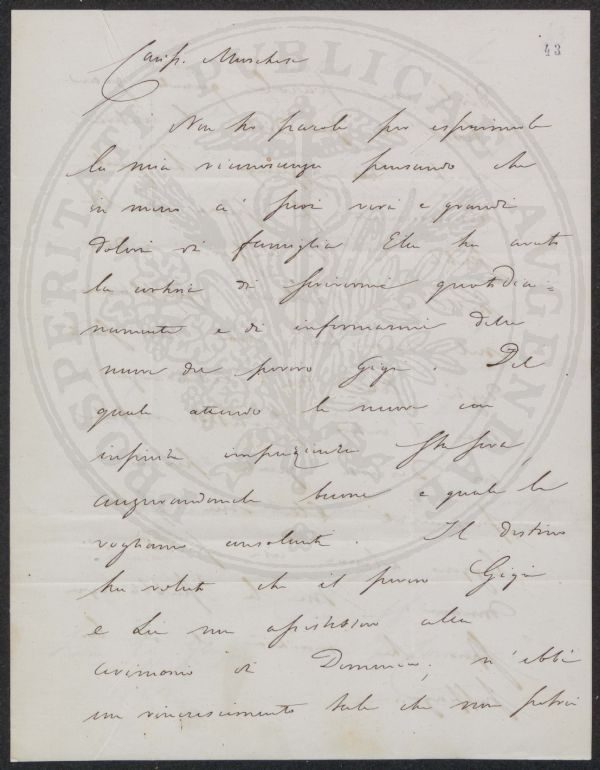 43
Cariss. Marchese
Non ho parole per esprimerle
la mia riconoscenza pensando che
in mezzo a' suoi veri e grandi
dolori di famiglia Ella ha avuto
la cortesia di scrivermi quotidia=
namente e di informarmi delle
nuove del povero Gigi. Del
quale attendo le nuove con
infinita impazienza stassera,
augurandomele buone e quali le
vogliamo consolanti. Il destino
ha voluto che il povero Gigi
e Lei non assistessero alla
cerimonia di Domenica; n'ebbi
un rincrescimento tale che non potrei
PROSPERITATI PUBLICAE AUGENDAE